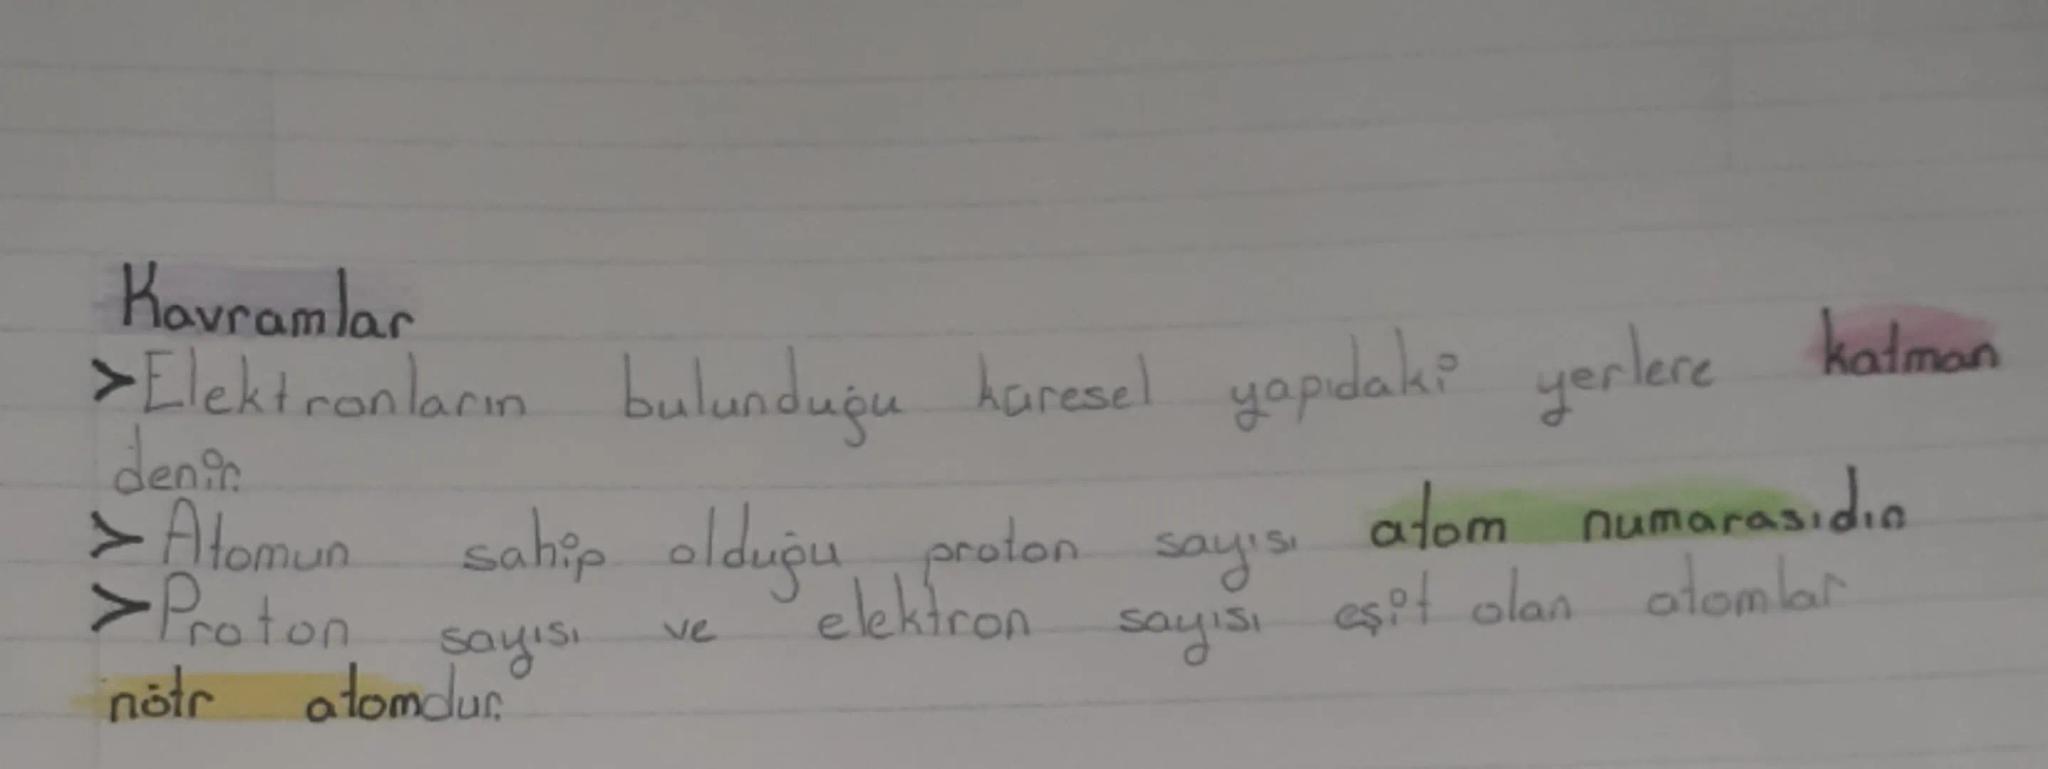 Kavramlar
>Elektronların bulunduğu küresel yapıdaki yerlere katman
denir.
>Atomun sahip olduğu proton sayısı atom numarasıdır.
>Proton sayısı ve elektron sayısı eşit olan atomlar
nötr atomdur.